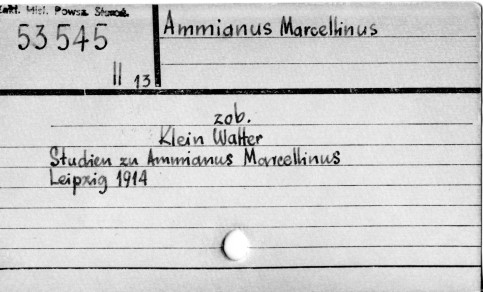 Zakł. Hist. Powsz. Staroż.
53545
II 13
Ammianus Marcellinus
zob.
Klein Walter
Studien zu Ammianus Marcellinus
Leipzig 1914